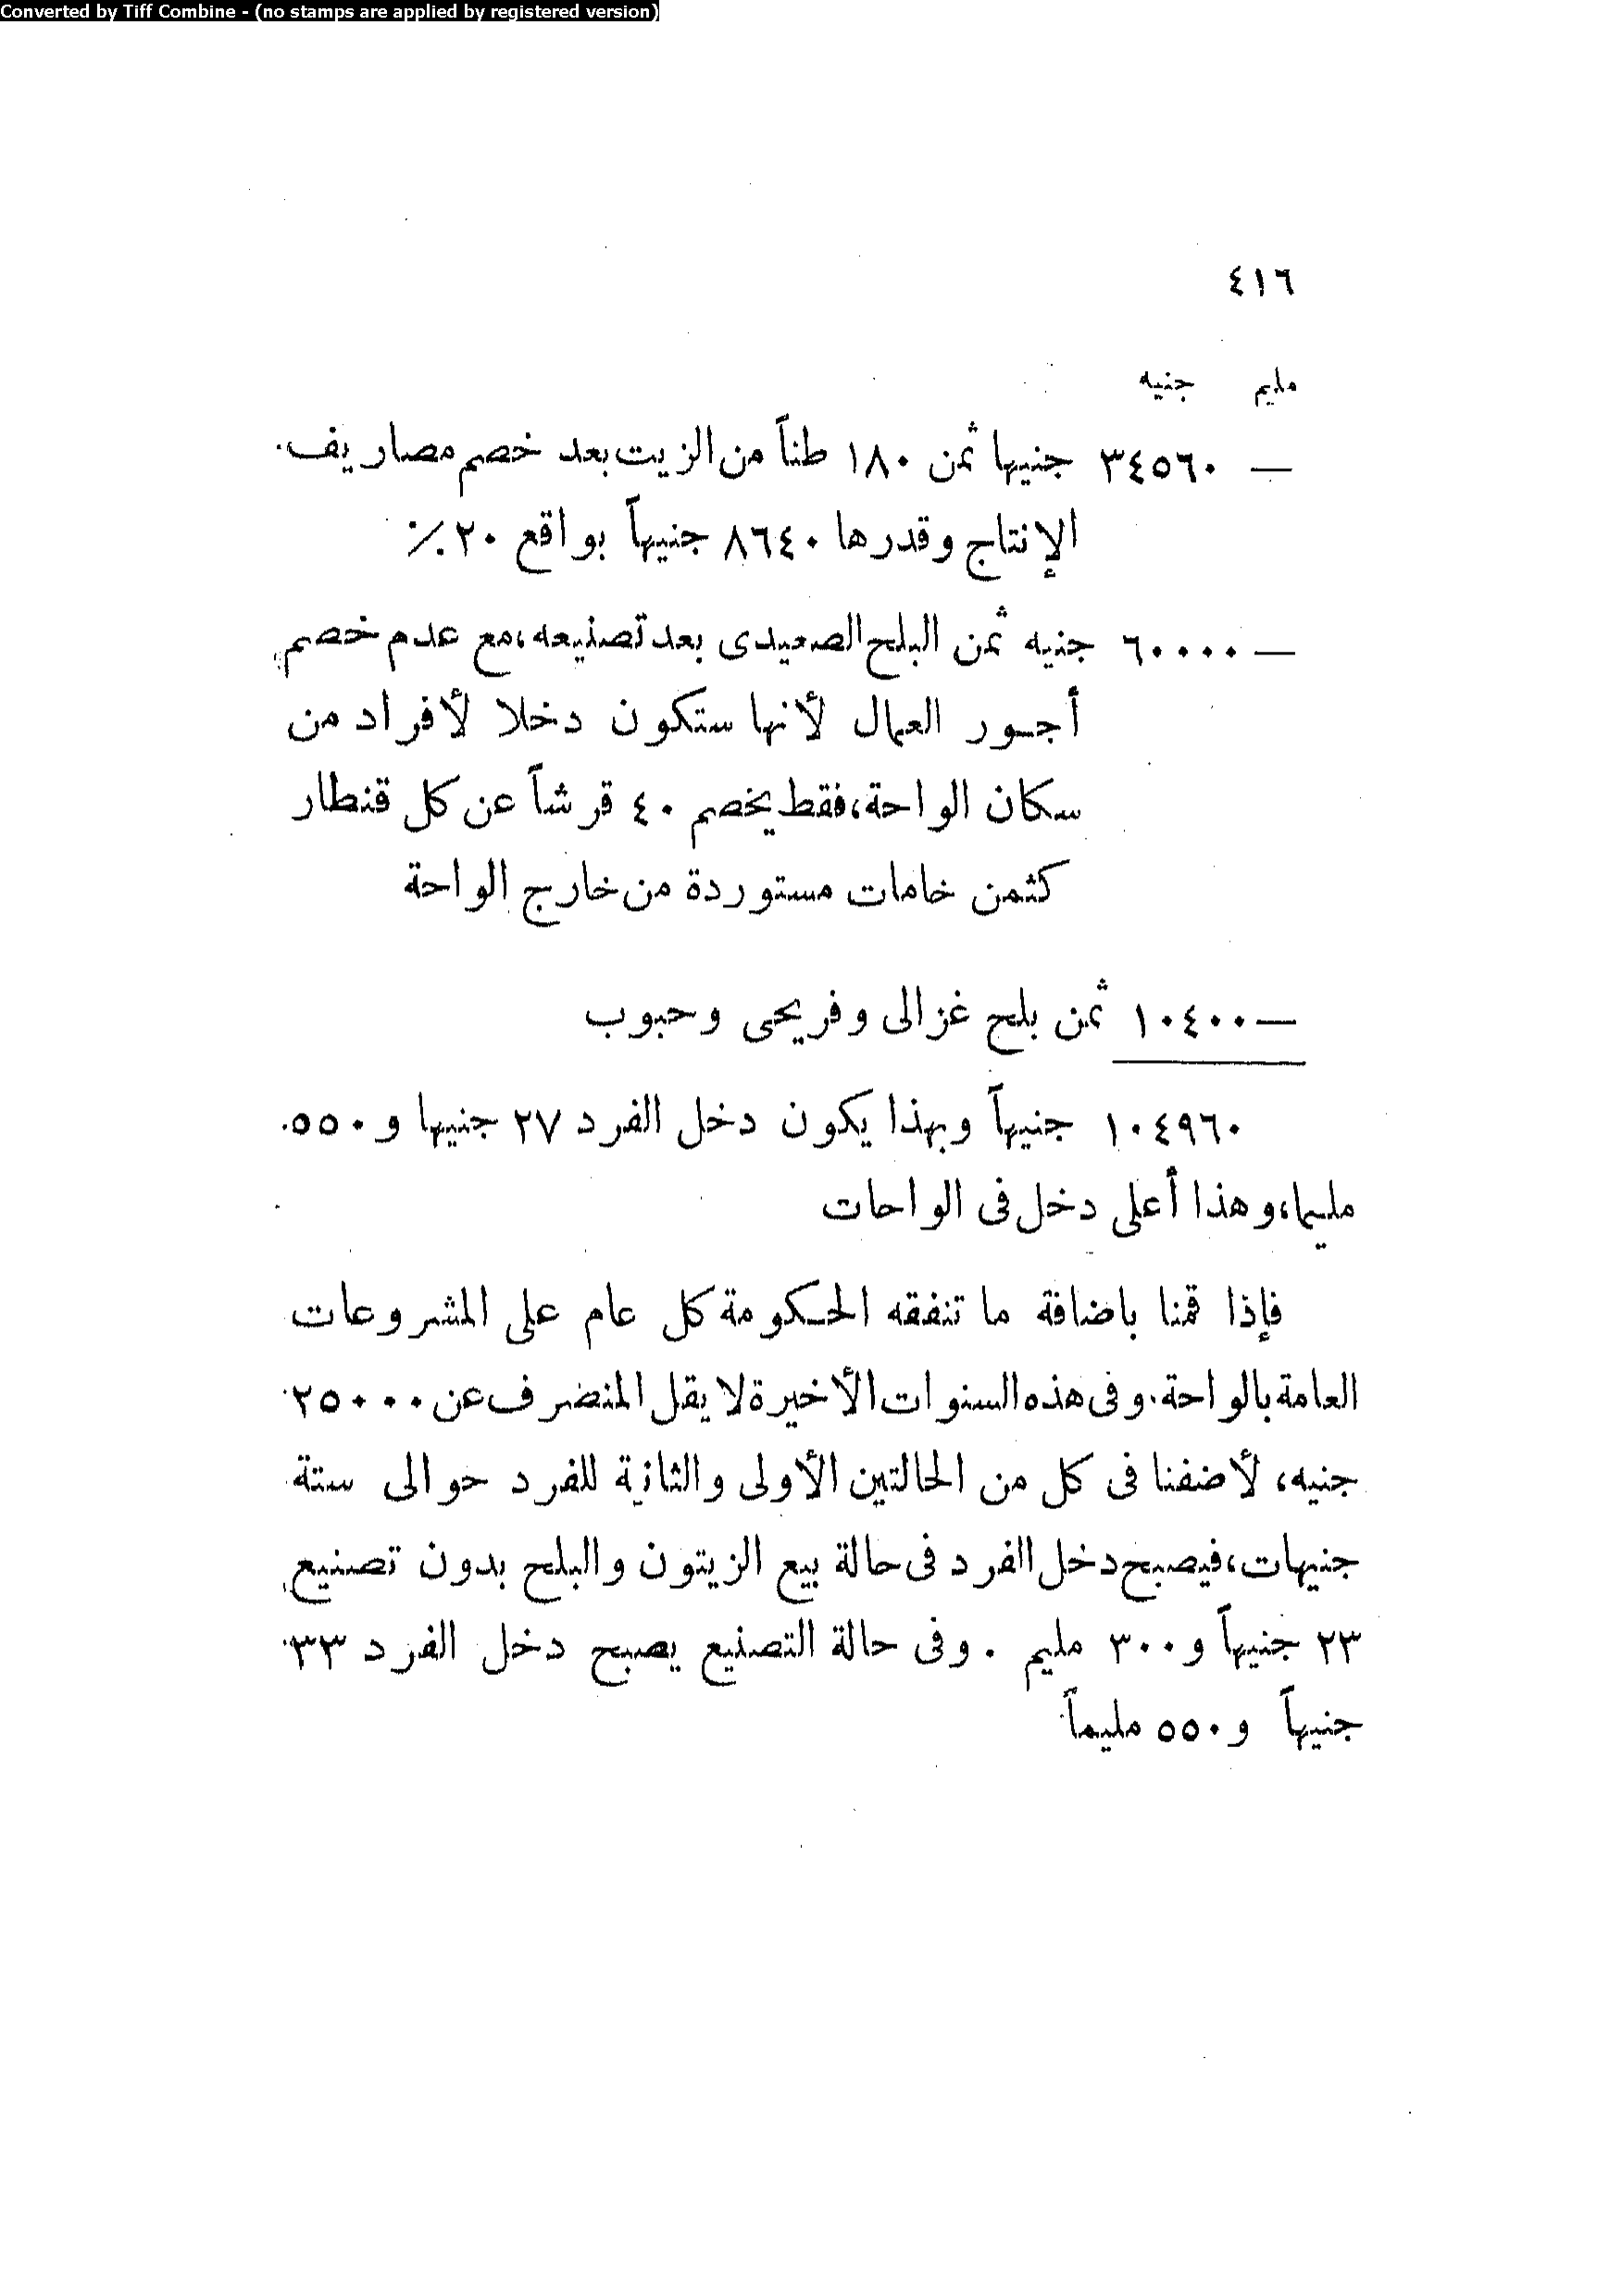 Converted by Tiff Combine - (no stamps are applied by registered version)
٤١٦
مليم جنيه
— ٣٤٥٦٠ جنيها ثمن ١٨٠ طناً من الزيت بعد خصم مصاريف
الإنتاج وقدرها ٨٦٤٠ جنيهاً بواقع ٢٠٪
— ٦٠٠٠٠ جنيه ثمن البلح الصعيدى بعد تصنيعه، مع عدم خصم
أجور العمال لأنها ستكون دخلا لأفراد من
سكان الواحة، فقط يخصم ٤٠ قرشاً عن كل قنطار
كثمن خامات مستوردة من خارج الواحة
— ١٠٤٠٠ ثمن بلح غزالى وفريحى وحبوب
١٠٤٩٦٠ جنيهاً وبهذا يكون دخل الفرد ٢٧ جنيها و ٥٥٠
مليما، وهذا أعلى دخل فى الواحات
فإذا قمنا باضافة ما تنفقه الحكومة كل عام على المشروعات
العامة بالواحة. وفى هذه السنوات الأخيرة لا يقل المنضرف عن ٢٥٠٠٠
جنيه، لأضفنا فى كل من الحالتين الأولى والثانية للفرد حوالى ستة
جنيهات، فيصبح دخل الفرد فى حالة بيع الزيتون والبلح بدون تصنيع
٢٣ جنيهاً و ٣٠٠ مليم . وفى حالة التصنيع يصبح دخل الفرد ٣٣
جنيهاً و ٥٥٠ مليماً